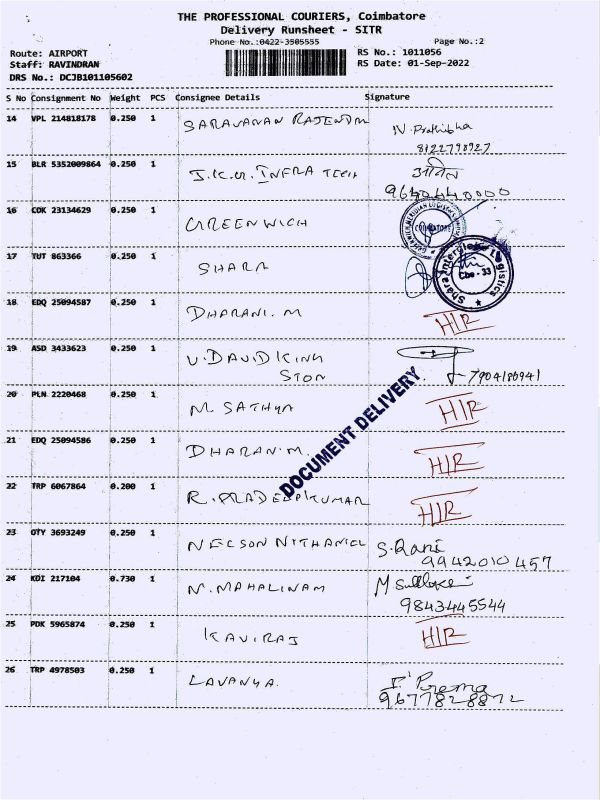 THE PROFESSIONAL COURIERS, Coimbatore
Delivery Runsheet - SITR
Phone No.:0422-3505555 Page No.:2
Route: AIRPORT RS No.: 1011056
Staff: RAVINDRAN RS Date: 01-Sep-2022
DRS No.: DCJB101105602
S No Consignment No Weight PCS Consignee Details Signature
14 VPL 214818178 0.250 1 SARAVANAN RAJENDM N. Prathibha
8122798927
15 BLR 5352009864 0.250 1 J.K.U. INFRA TECH
9640440000
16 COK 23134629 0.250 1 GREENWICH
COIMBATORE
17 TUT 863366 0.250 1 SHARA
Shara Interglobe Logistics
Cbe - 33
18 EDQ 25094587 0.250 1 DHARANI. M HIR
19 ASD 3433623 0.250 1 V. DAVID KING
STON 7904180941
20 PLN 2220468 0.250 1 M SATHYA HIR
DOCUMENT DELIVERY
21 EDQ 25094586 0.250 1 DHARANI.M. HIR
22 TRP 6067864 0.200 1 R. PRADEEPKUMAR HIR
23 OTY 3693249 0.250 1 NELSON NITHANIEL S. Rani
9942010457
24 KDI 217104 0.730 1 N. MAHALINAM
9843445544
25 PDK 5965874 0.250 1 KAVIRAJ HIR
26 TRP 4978503 0.250 1 LAVANYA. Prema
9677828872